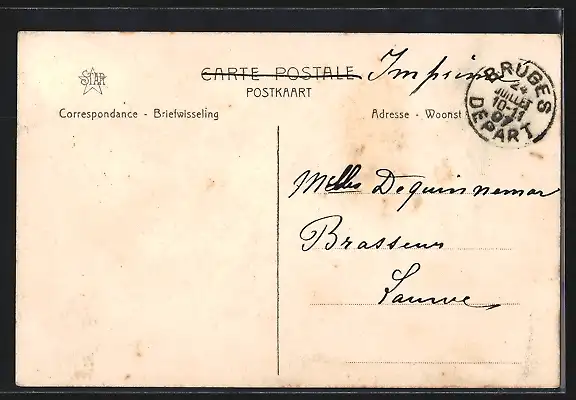 STAR
CARTE POSTALE Imprimé
POSTKAART
BRUGES
24
JUILLET
10-11
07
DEPART
Correspondance - Briefwisseling
Adresse - Woonst
Melles Dequinnemar
Brasseur
Lauwe